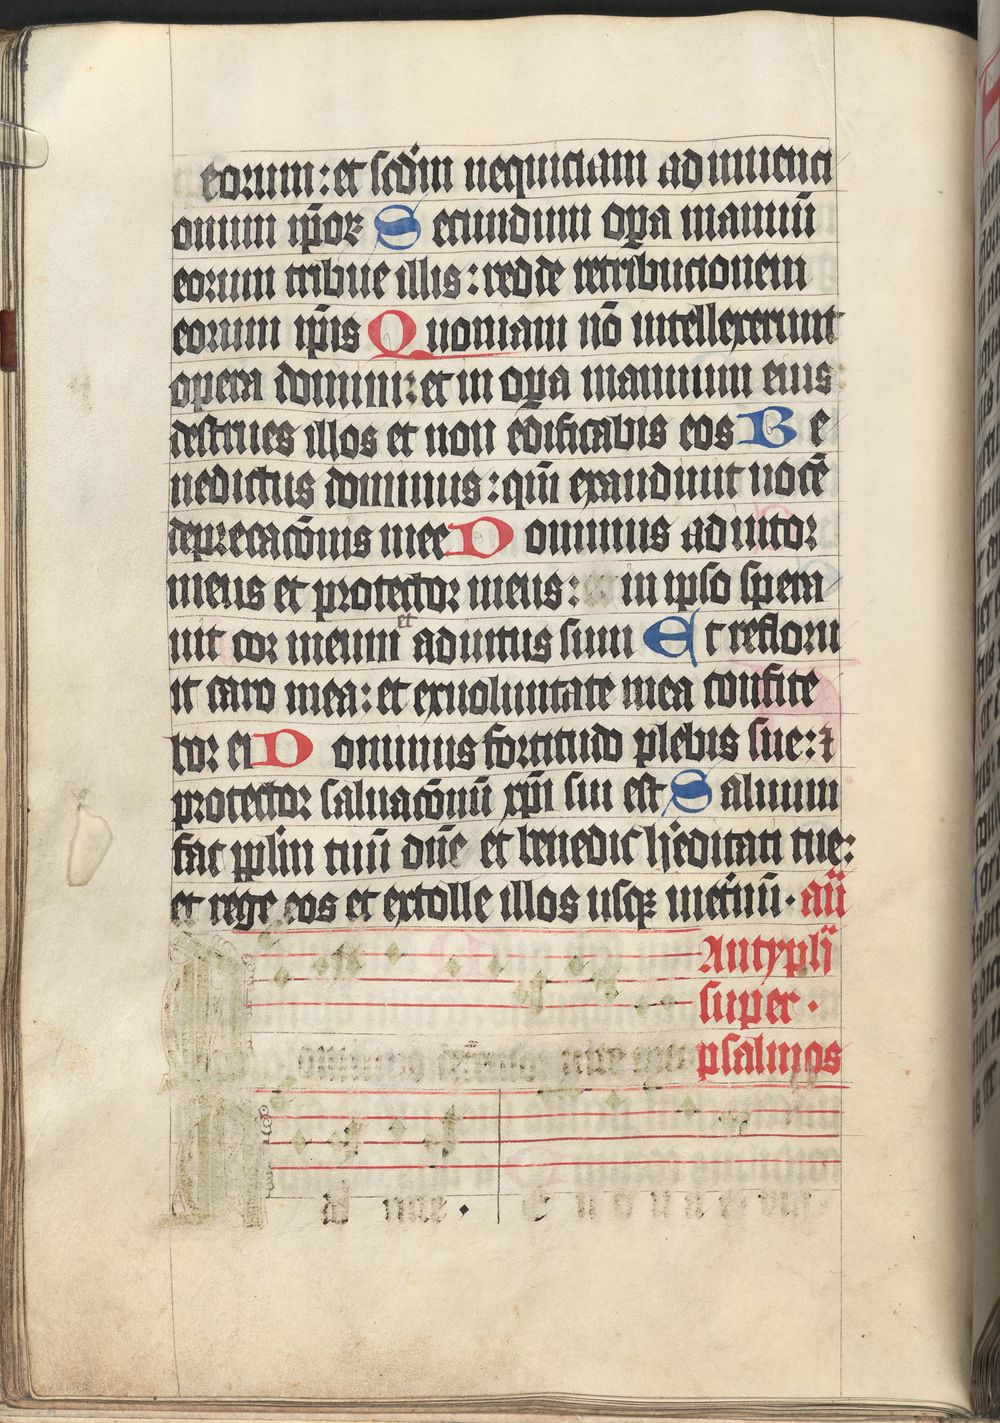 eorum: et scd̄m nequiciam adinuenci
onum ip̄oꝝ Secundum oꝑa manuū
eorum tribue illis: redde retribucionem
eorum ip̄is Quoniam nō intellexerunt
opera domini: et in oꝑa manuum eius:
destrues illos et non edificabis eos Be
nedictus dominus: qm̄ exaudiuit uocē
deprecacōnis mee Dominus adiutor
meus et protector meus: in ipso spera
et
uit cor meum adiutus sum Et refloru
it caro mea: et exuoluntate mea confite
bor ei Dominus fortitudo plebis sue: ⁊
protector saluacōnū xp̄i sui est Saluum
fac pplm̄ tuū dn̄e et benedic hēditati tue:
et rege eos et extolle illos usqꝫ inet̄nū · añ
Antyph̄
super ·
psalmos
ad me · E u o u a e